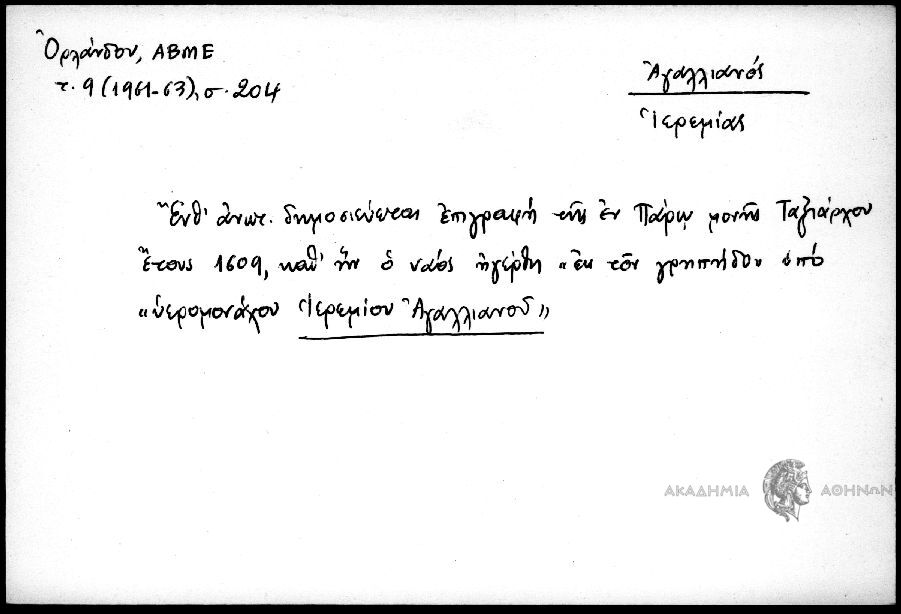 Ὀρλάνδου, ΑΒΜΕ
τ. 9 (1961-63), σ. 204
Ἀγαλλιανός
Ἱερεμίας
Ἔνθ' ἀνωτ. δημοσιεύεται ἐπιγραφή τῆς ἐν Πάρῳ μονῆς Ταξιάρχου
ἔτους 1609, καθ' ἥν ὁ ναός ἠγέρθη «ἐκ τοῦ γρηπήδου ὑπό
«ἱερομονάχου Ἱερεμίου Ἀγαλλιανοῦ»
ΑΚΑΔΗΜΙΑ ΑΘΗΝΩΝ